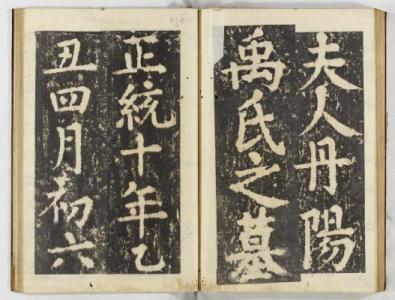 夫人丹陽
禹氏之墓
正統十年乙
丑四月初六